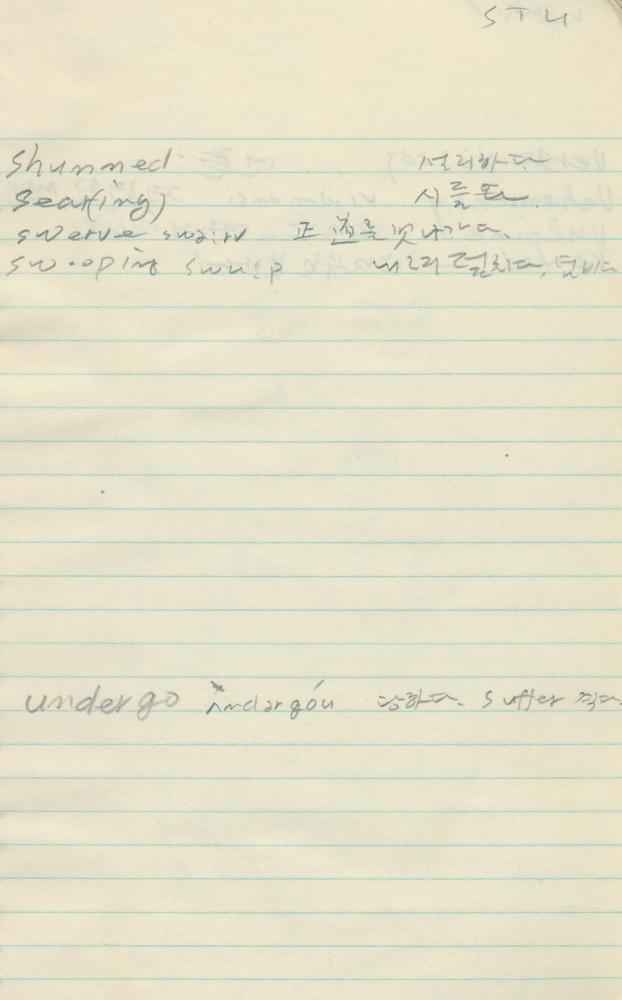 STU
shunned 멀리하다
swerve swə:rv 正道를 벗어나가다.
swooping swu:p 내리 덮치다, 덤비다
undergo ʌ̀ndərgóu 당하다. suffer 겪다